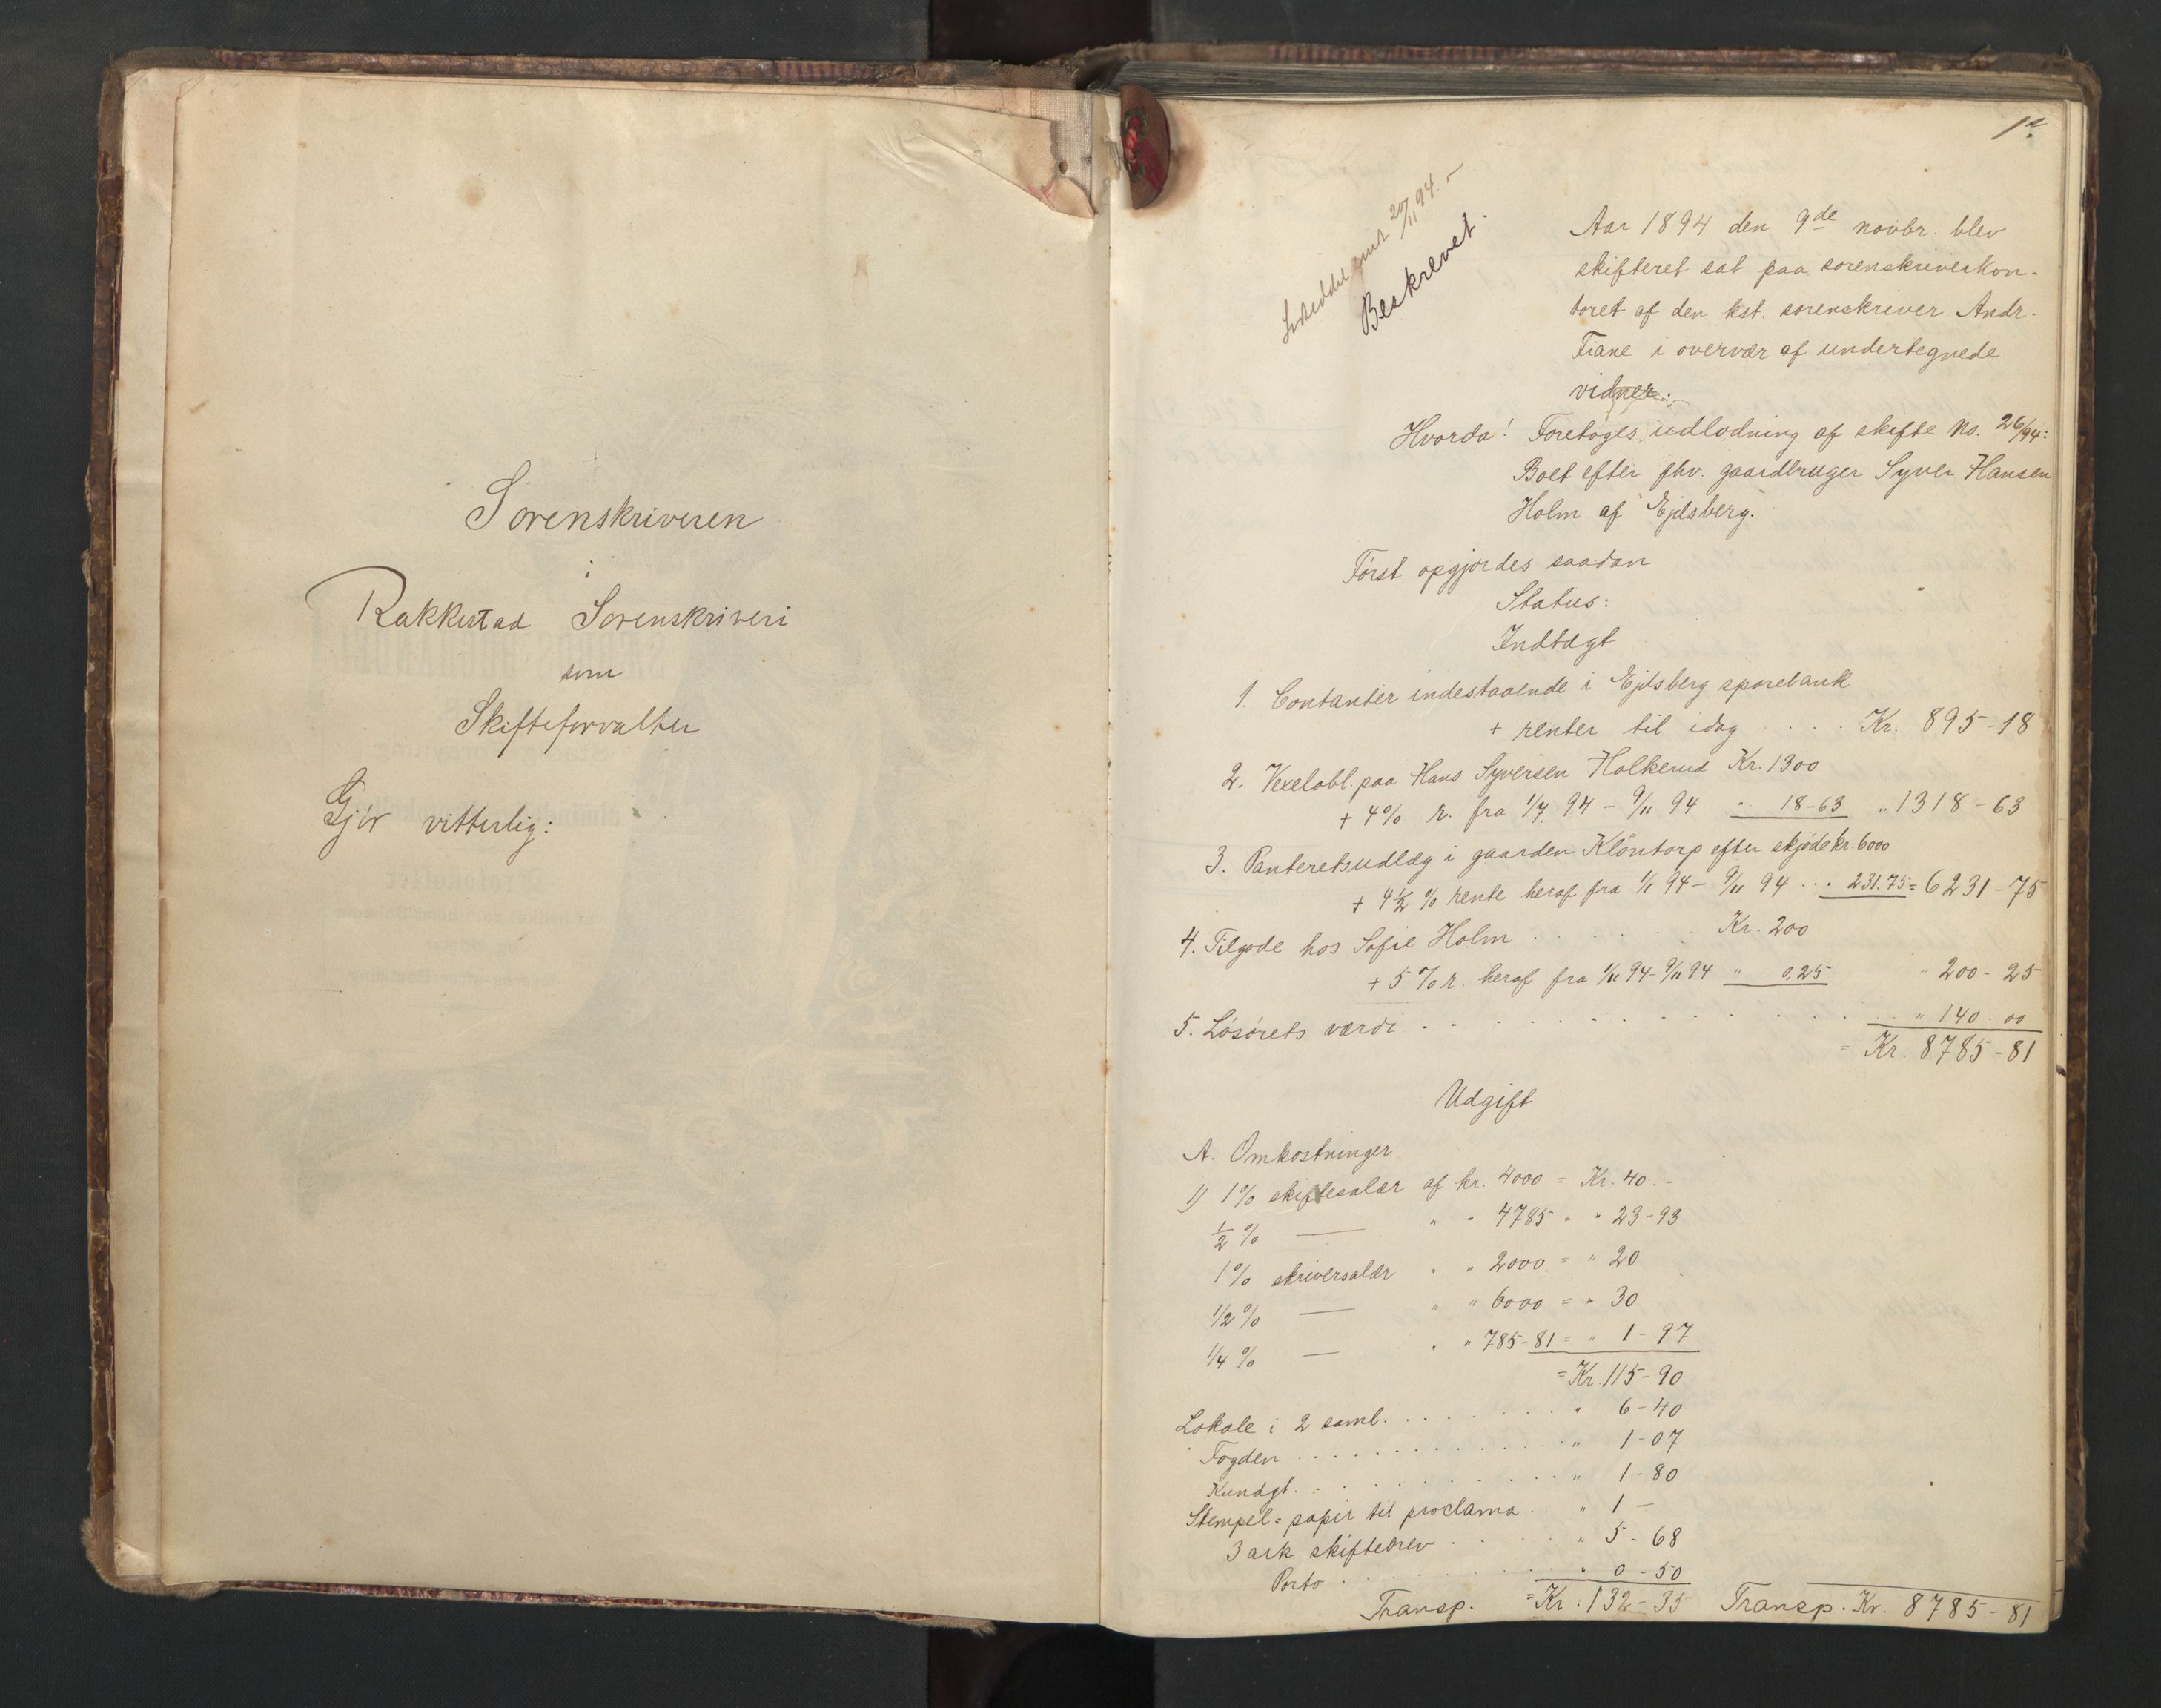 Sorenskriveren
i
Rakkestad Sorenskriveri
som
Skifteforvalter
Gjør vitterlig:
1a
20/11 94.
Beskrevet.
Aar 1894 den 9de novbr. blev
skifteret sat paa sorenskriverkon-
toret af den kst. sorenskriver Andr.
Fiane i overvær af undertegnede
vidner:
Hvorda! Foretoges udlodning af skifte No. 26/94:
Boet efter fhv. gaardbruger Syver Hansen
Holm af Ejdsberg.
Først opgjordes saadan
Status:
Indtægt
1. Contanter indestaaende i Ejdsberg sparebank
+ renter til idag . . . . Kr. 895-18
2. Vexelobl. paa Hans Syversen Holkerud Kr. 1300
+ 4% r. fra 1/7 94 - 9/11 94 " 18-63 " 1318-63
3. Panteretsudlæg i gaarden Kløntorp efter skjøde kr. 6000
+ 4 1/2 % rente heraf fra 1/1 94 - 9/11 94 . . . 231.75 = 6231-75
4. Tilgode hos Sofie Holm . . . . . . Kr. 200
+ 5 % r. heraf fra 1/11 94 - 9/11 94 " 0,25 " 200-25
5. Løsørets værdi . . . . . . . . . . . " 140-00
= Kr. 8785-81
Udgift
A. Omkostninger
1) 1% skiftesalær af kr. 4000 = Kr. 40.-
1/2 % — " " 4785 " " 23-93
1% skriversalær " " 2000 = " 20
1/2 % — " " 6000 = " 30
1/4 % — " " 785-81 = " 1-97
= Kr. 115-90
Lokale i 2 saml. . . . . . . . " 6-40
Fogden . . . . . . . . . . . " 1-07
Kundgt. . . . . . . . . . . " 1-80
Stempel-papir til proclama . . " 1 -
3 ark skiftebrev . . . . . " 5-68
Porto . . . . . . . . . . " 0-50
Transp. = Kr. 132-35 Transp. Kr. 8785-81